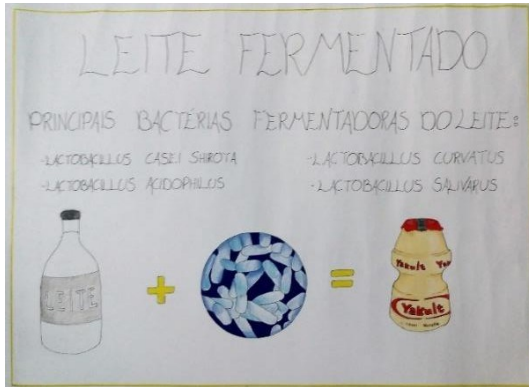 LEITE FERMENTADO
PRINCIPAIS BACTÉRIAS FERMENTADORAS DO LEITE:
-LACTOBACILLUS CASEI SHIROTA
-LACTOBACILLUS CURVATUS
-LACTOBACILLUS ACIDOPHILUS
-LACTOBACILLUS SALIVARUS
LEITE
+
=
Yakult
Yakult
Yakult